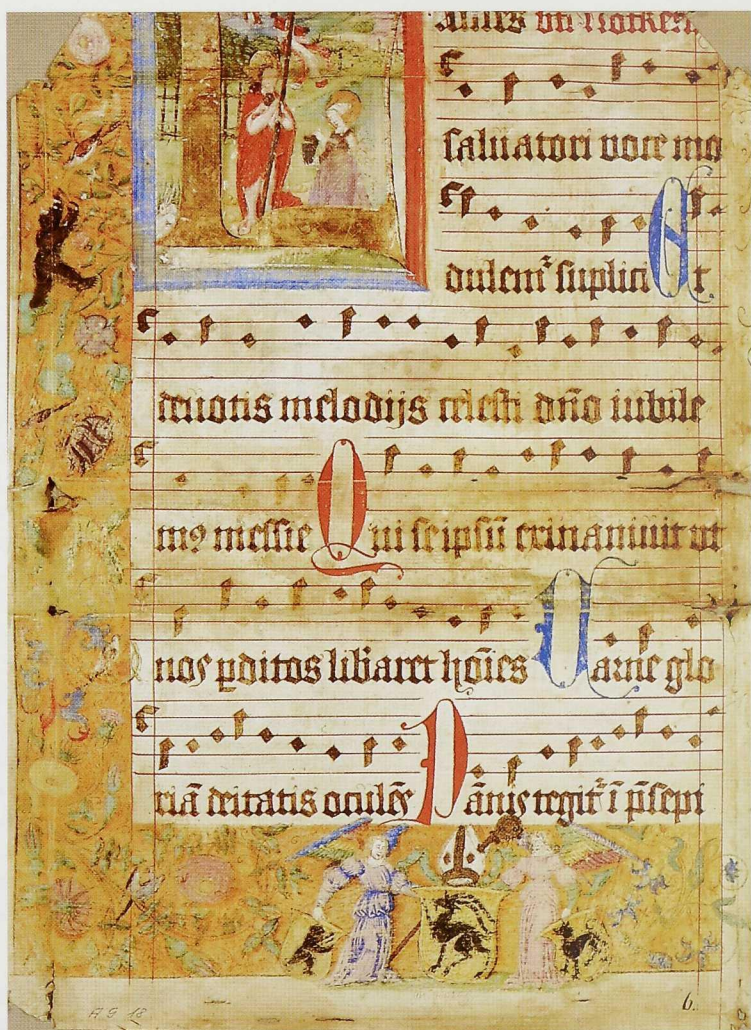 saluatori voce mo
dulem᷑ suplici Et
deuotis melodijs celesti dño iubile
mꝰ messie Qui seipsũ exinaniuit vt
nos ꝑditos libaret hoı̃es Carne glo
riã deitatis oculẽs Pãnis tegit᷑ ĩ p̃sepi
A G 18
6.